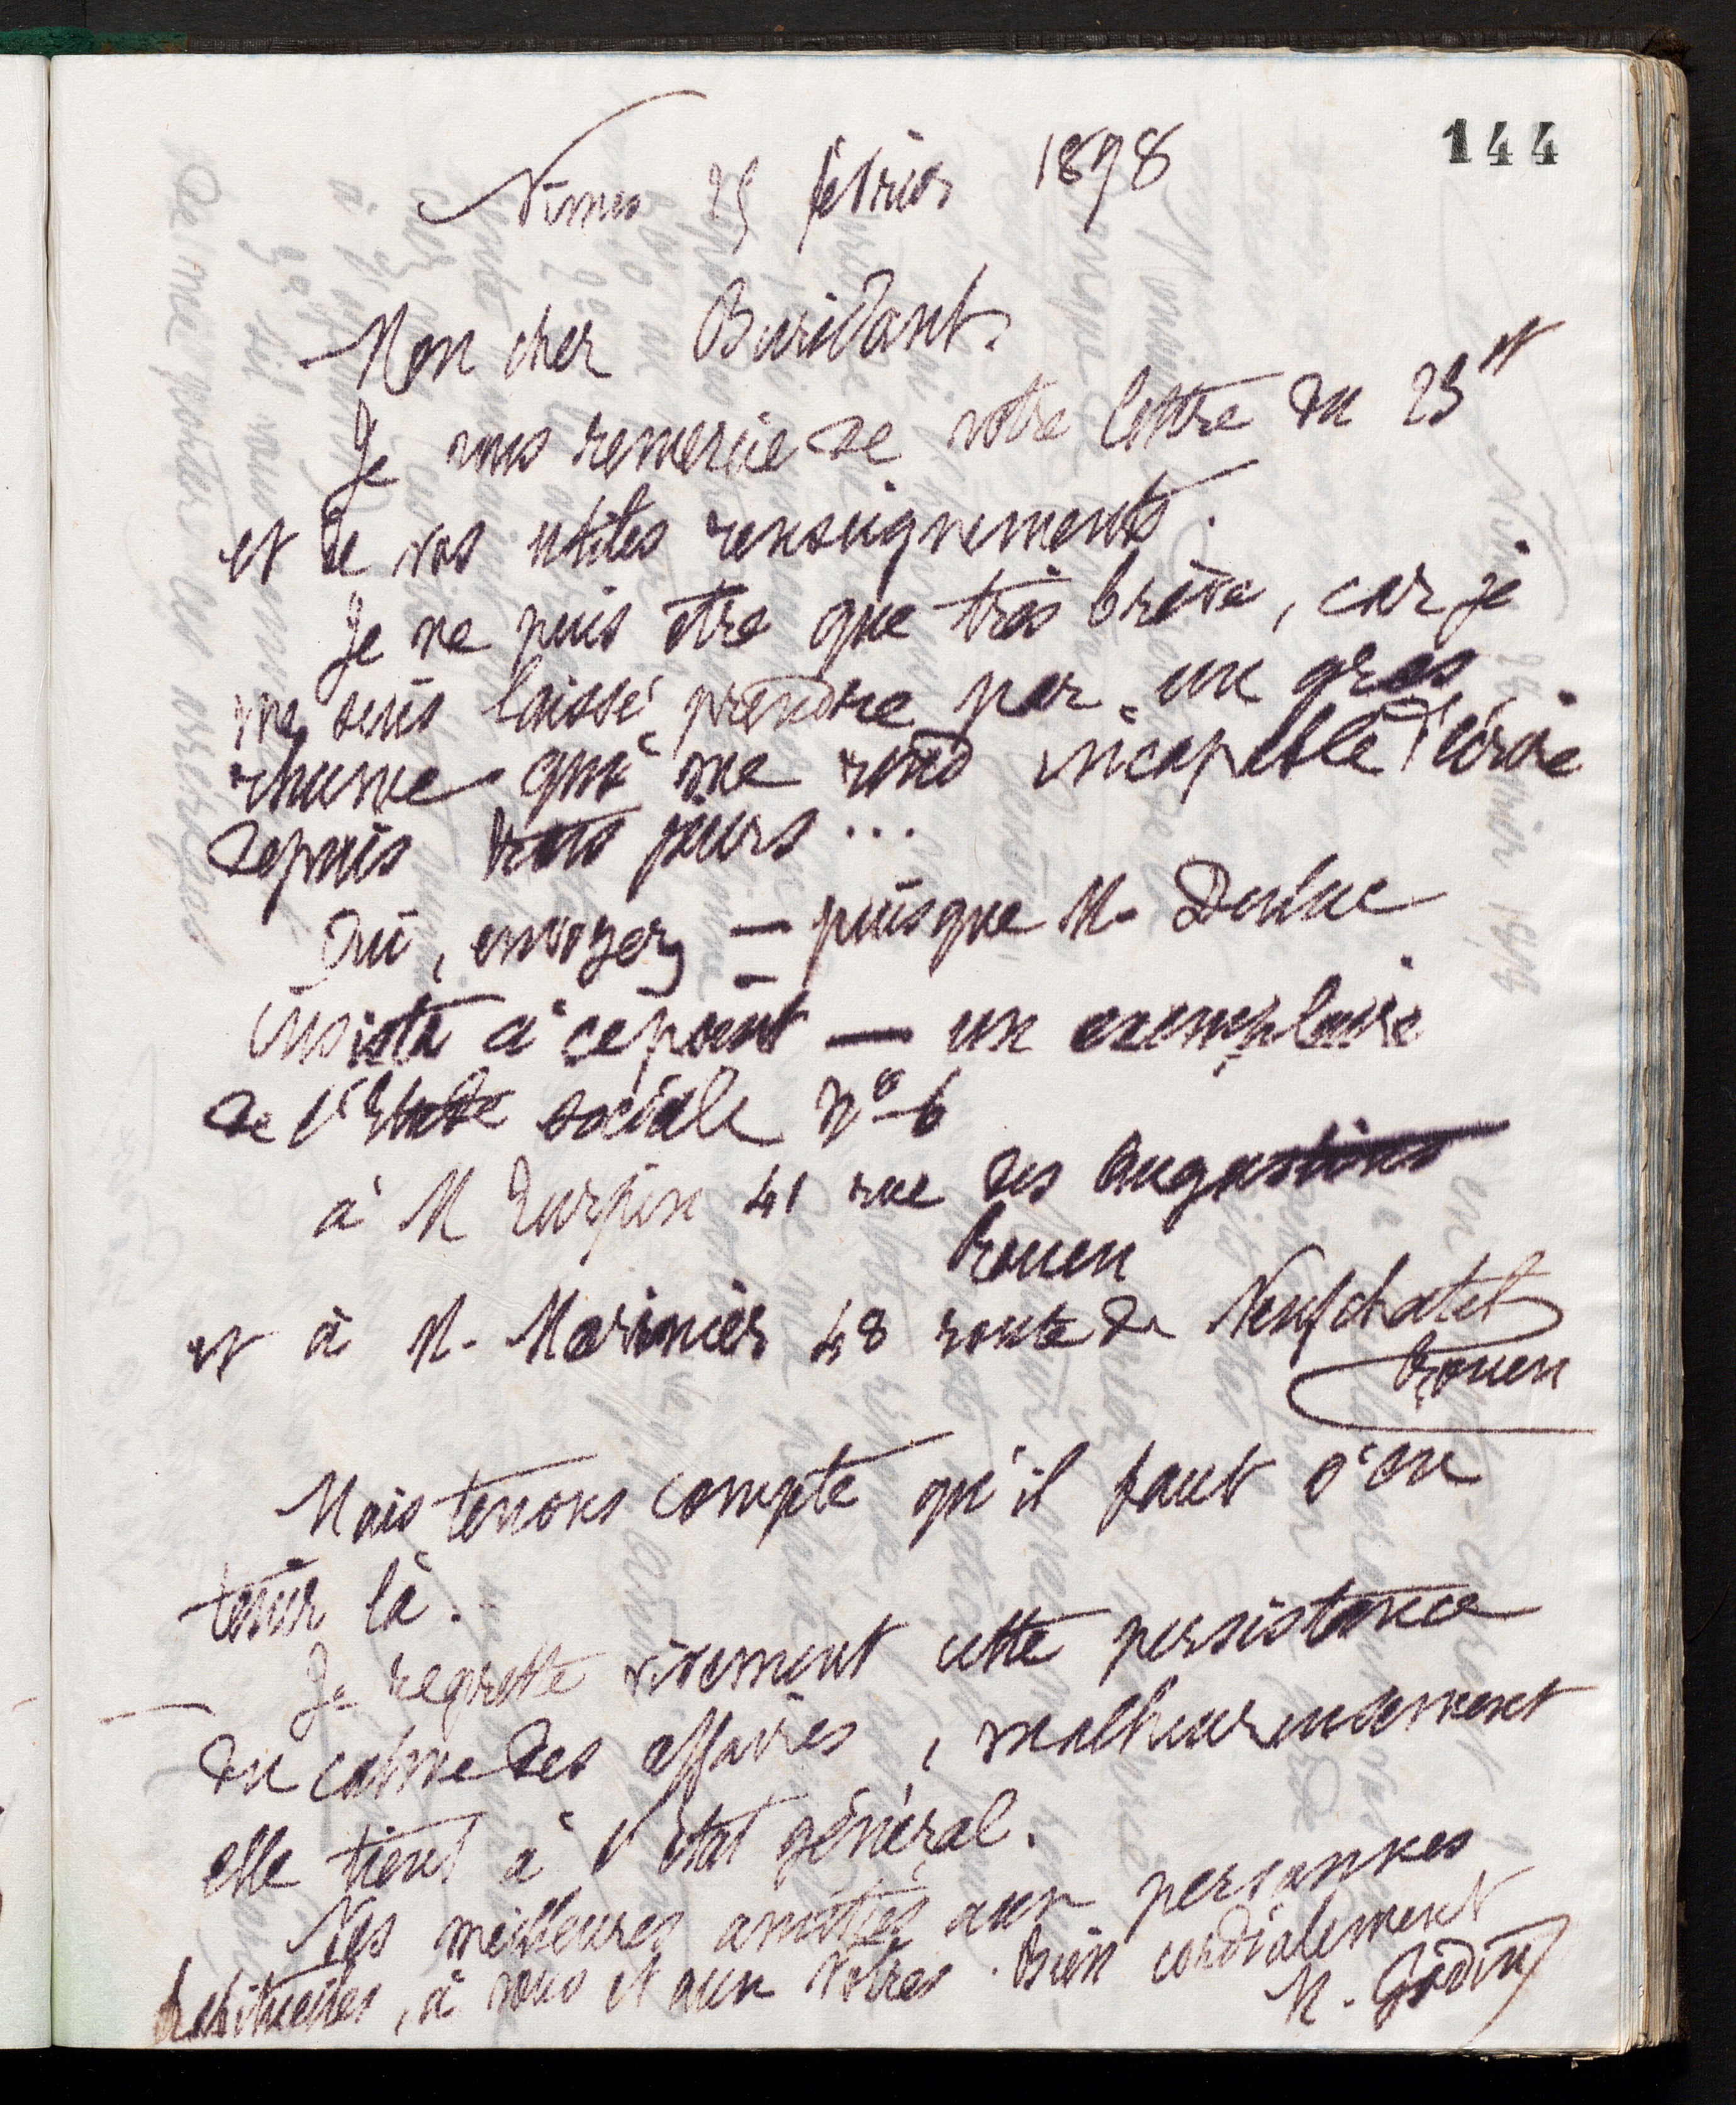 144
Nîmes 25 février 1898
Mon cher Buridant,
Je vous remercie de votre lettre du 23 et
et de vos utiles renseignements.
Je ne puis être que très brève, car je
me suis laissé prendre par un gros
rhume qui me rend incapable d'écrire
depuis trois jours...
Oui, envoyez — puisque M. Doulue
insiste à ce point — un exemplaire
de l'Etude sociale n° 6
à M Turpin 41 rue des Augustins
Rouen
et à M. Marinier 48 route de Neufchatel
Rouen
Mais tenons compte qu'il faut s'en
tenir là.
Je regrette vivement cette persistance
du calme des affaires, malheureusement
elle tient à l'état général.
Nos meilleures amitiés aux personnes
habituelles, à vous et aux vôtres. Bien cordialement
M. Godin